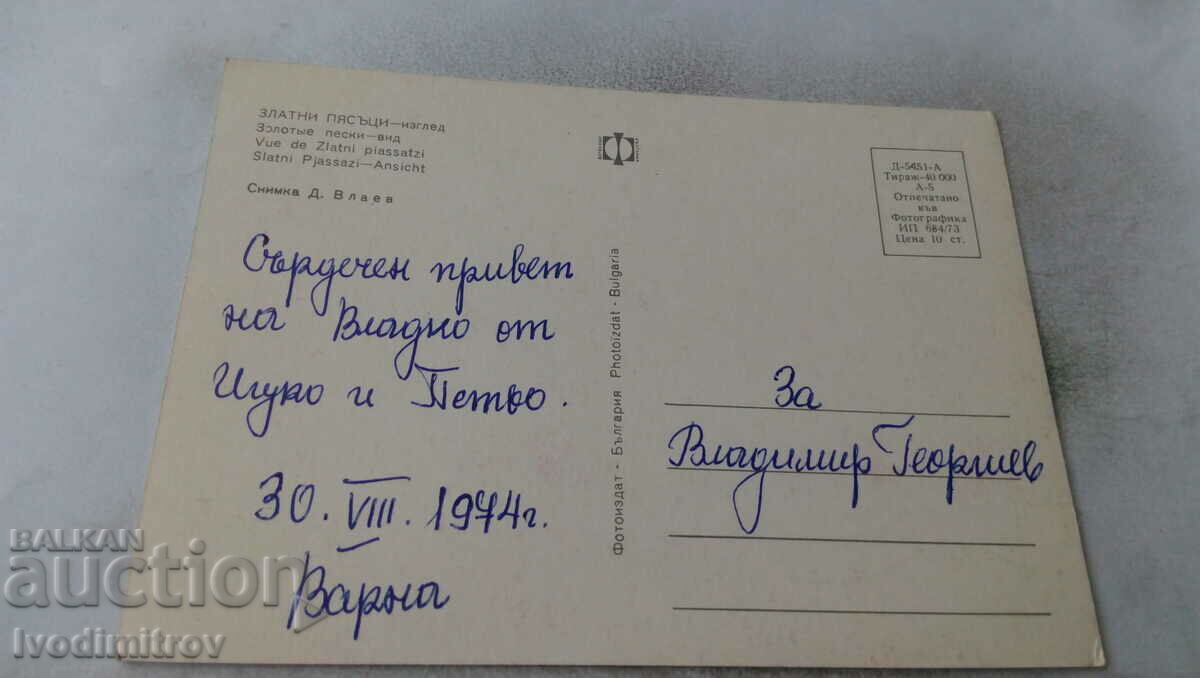 ЗЛАТНИ ПЯСЪЦИ—изглед
Золотые пески—вид
Vue de Zlatni piassatzi
Slatni Pjassazi—Ansicht
Снимка Д. Влаев
Сърдечен привет
на Владко от
Илуко и Петьо.
30. VIII. 1974г.
Варна
Фотоиздат - България Photoizdat - Bulgaria
Д-5451-А
Тираж-40 000
А-5
Отпечатано
във
Фотографика
ИП 684/73
Цена 10 ст.
За
Владимир Георгиев
BALKAN
auction
Ivodimitrov